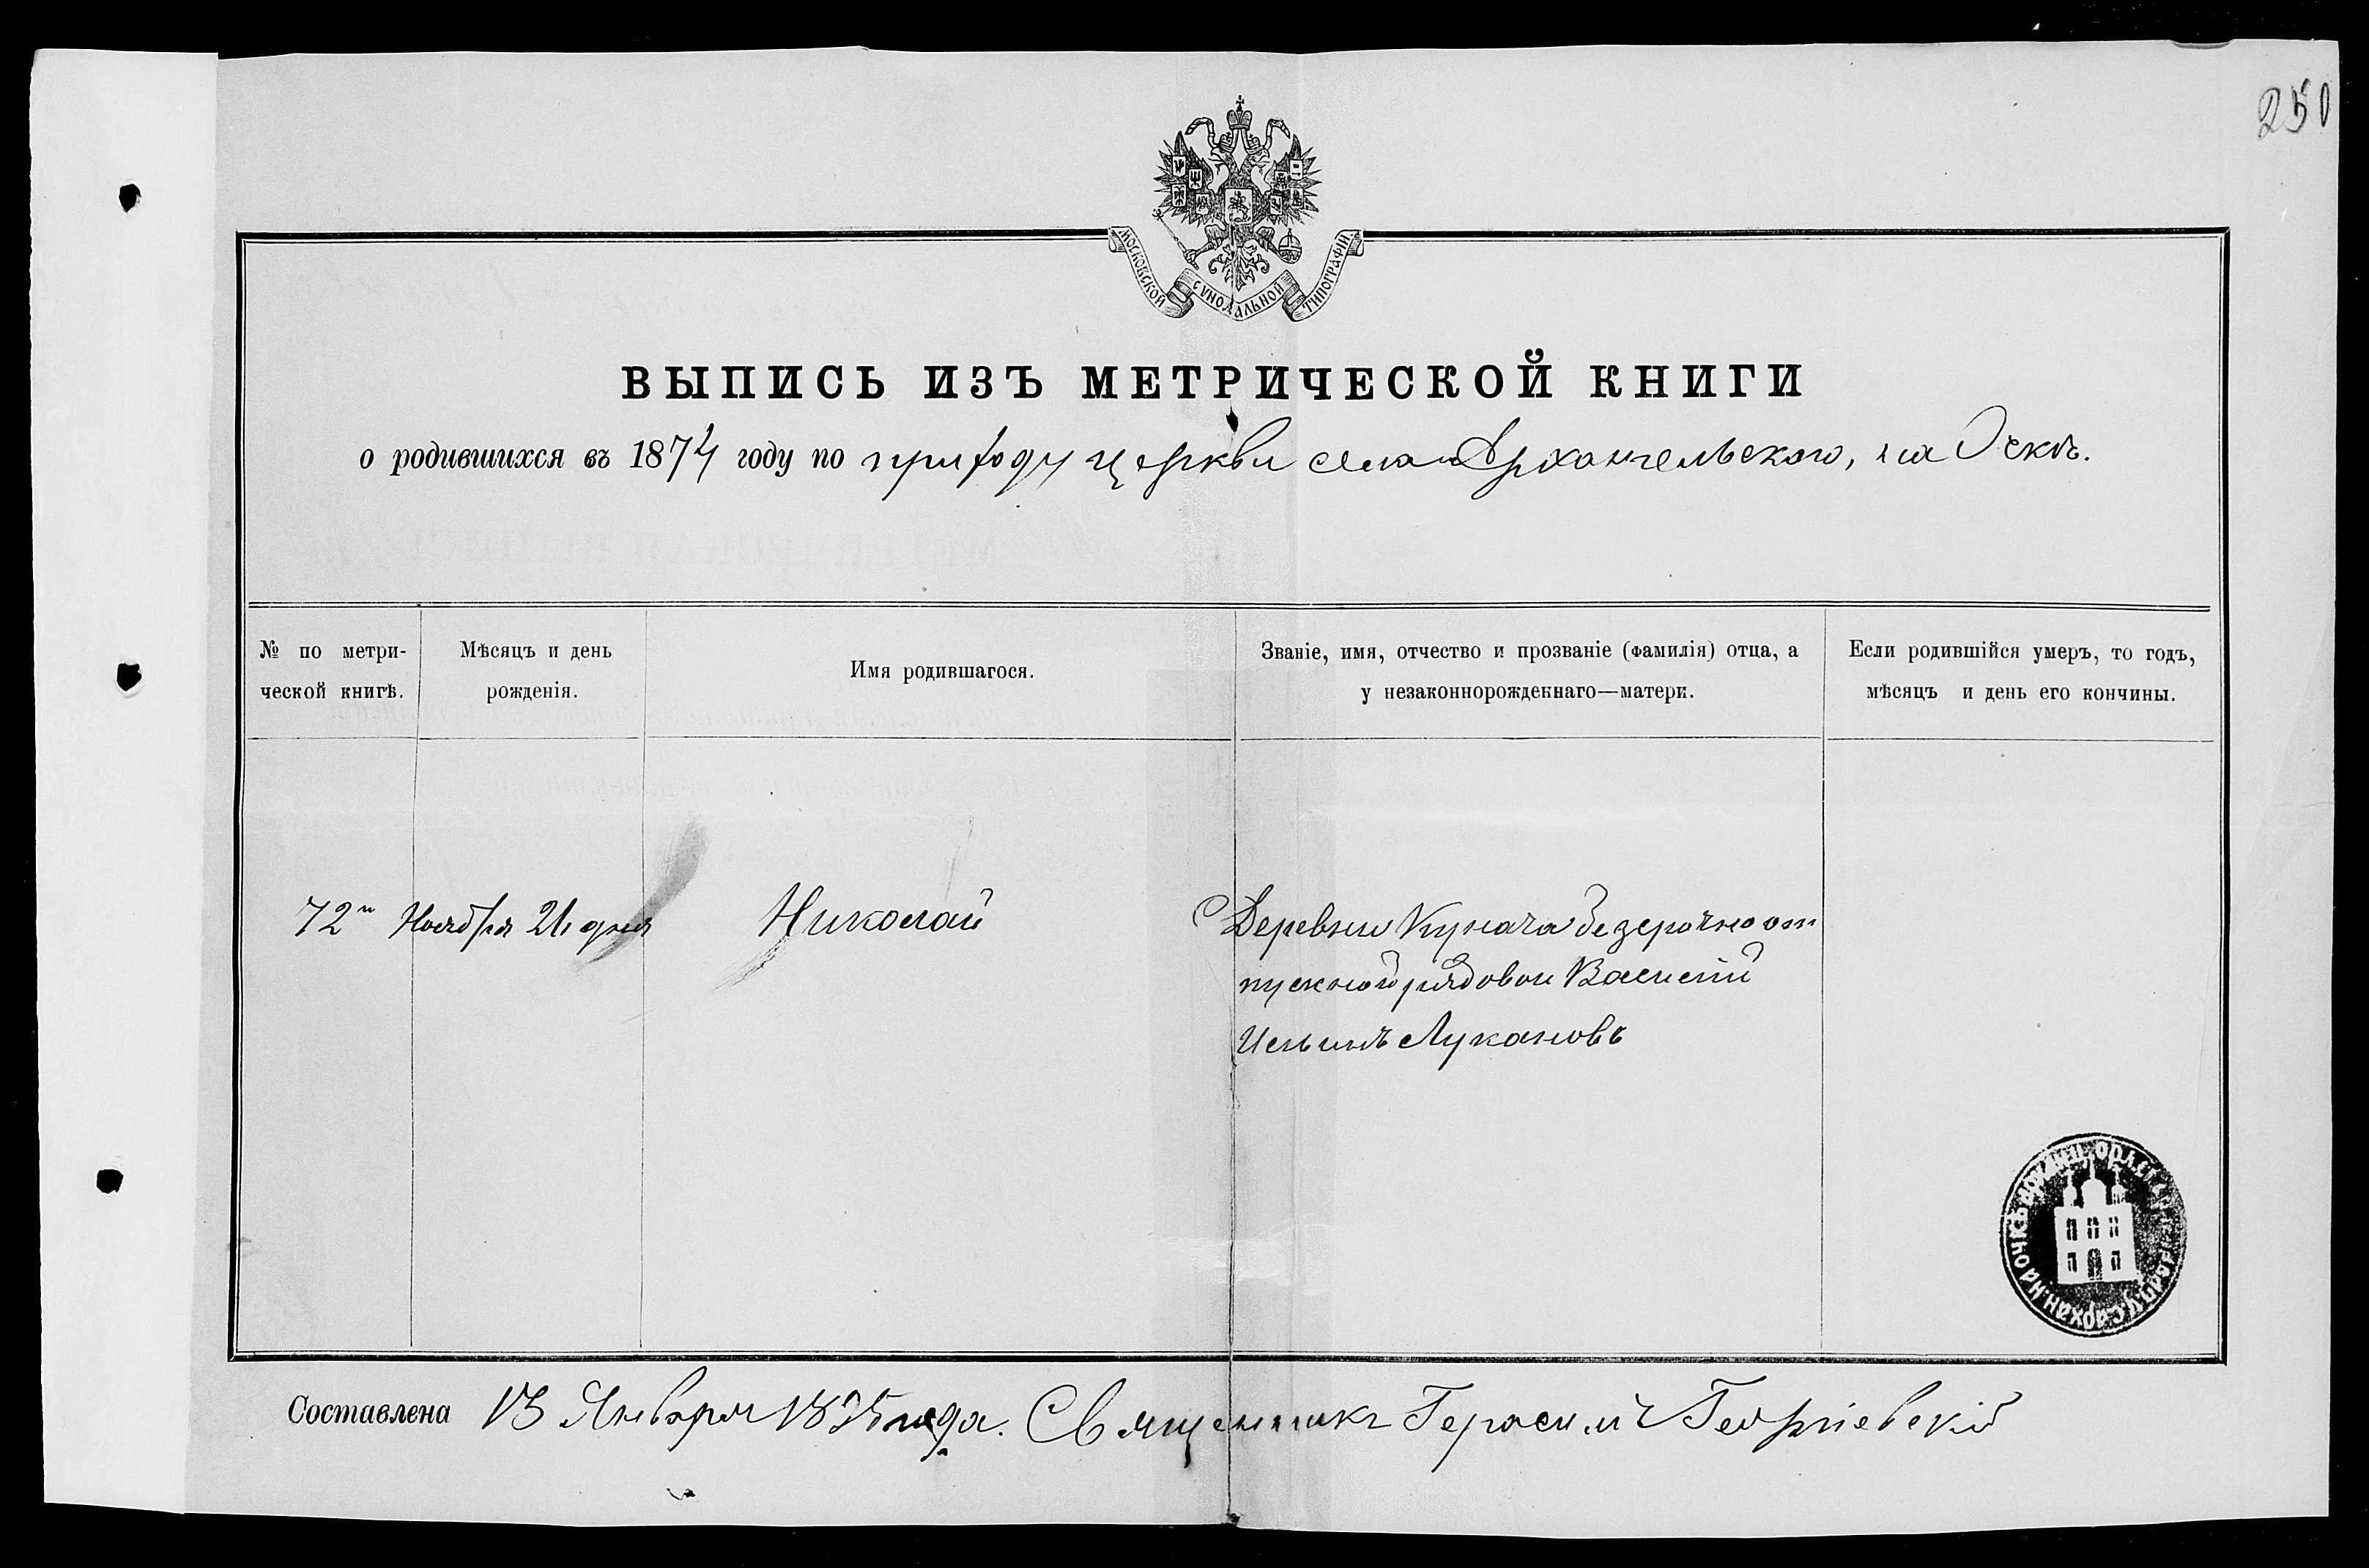 250
МОСКОВСКОЙ СѴНОДАЛЬНОЙ ТИПОГРАФІИ
ВЫПИСЬ ИЗЪ МЕТРИЧЕСКОЙ КНИГИ
о родившихся въ 1874 году по приходу церкви села Архангельскаго, на Очкѣ.
№ по метри-
ческой книгѣ.
Мѣсяцъ и день
рожденія.
Имя родившагося.
Званіе, имя, отчество и прозваніе (фамилія) отца, а
у незаконнорожденнаго—матери.
Если родившійся умеръ, то годъ,
мѣсяцъ и день его кончины.
72й
Ноября 21 дня
Николай
Деревни Кунача безсрочноот
пускной рядовой Василій
Ильинъ Лукановъ
Составлена 13 Января 1895 года. Священникъ Герасимъ Георгіевскій